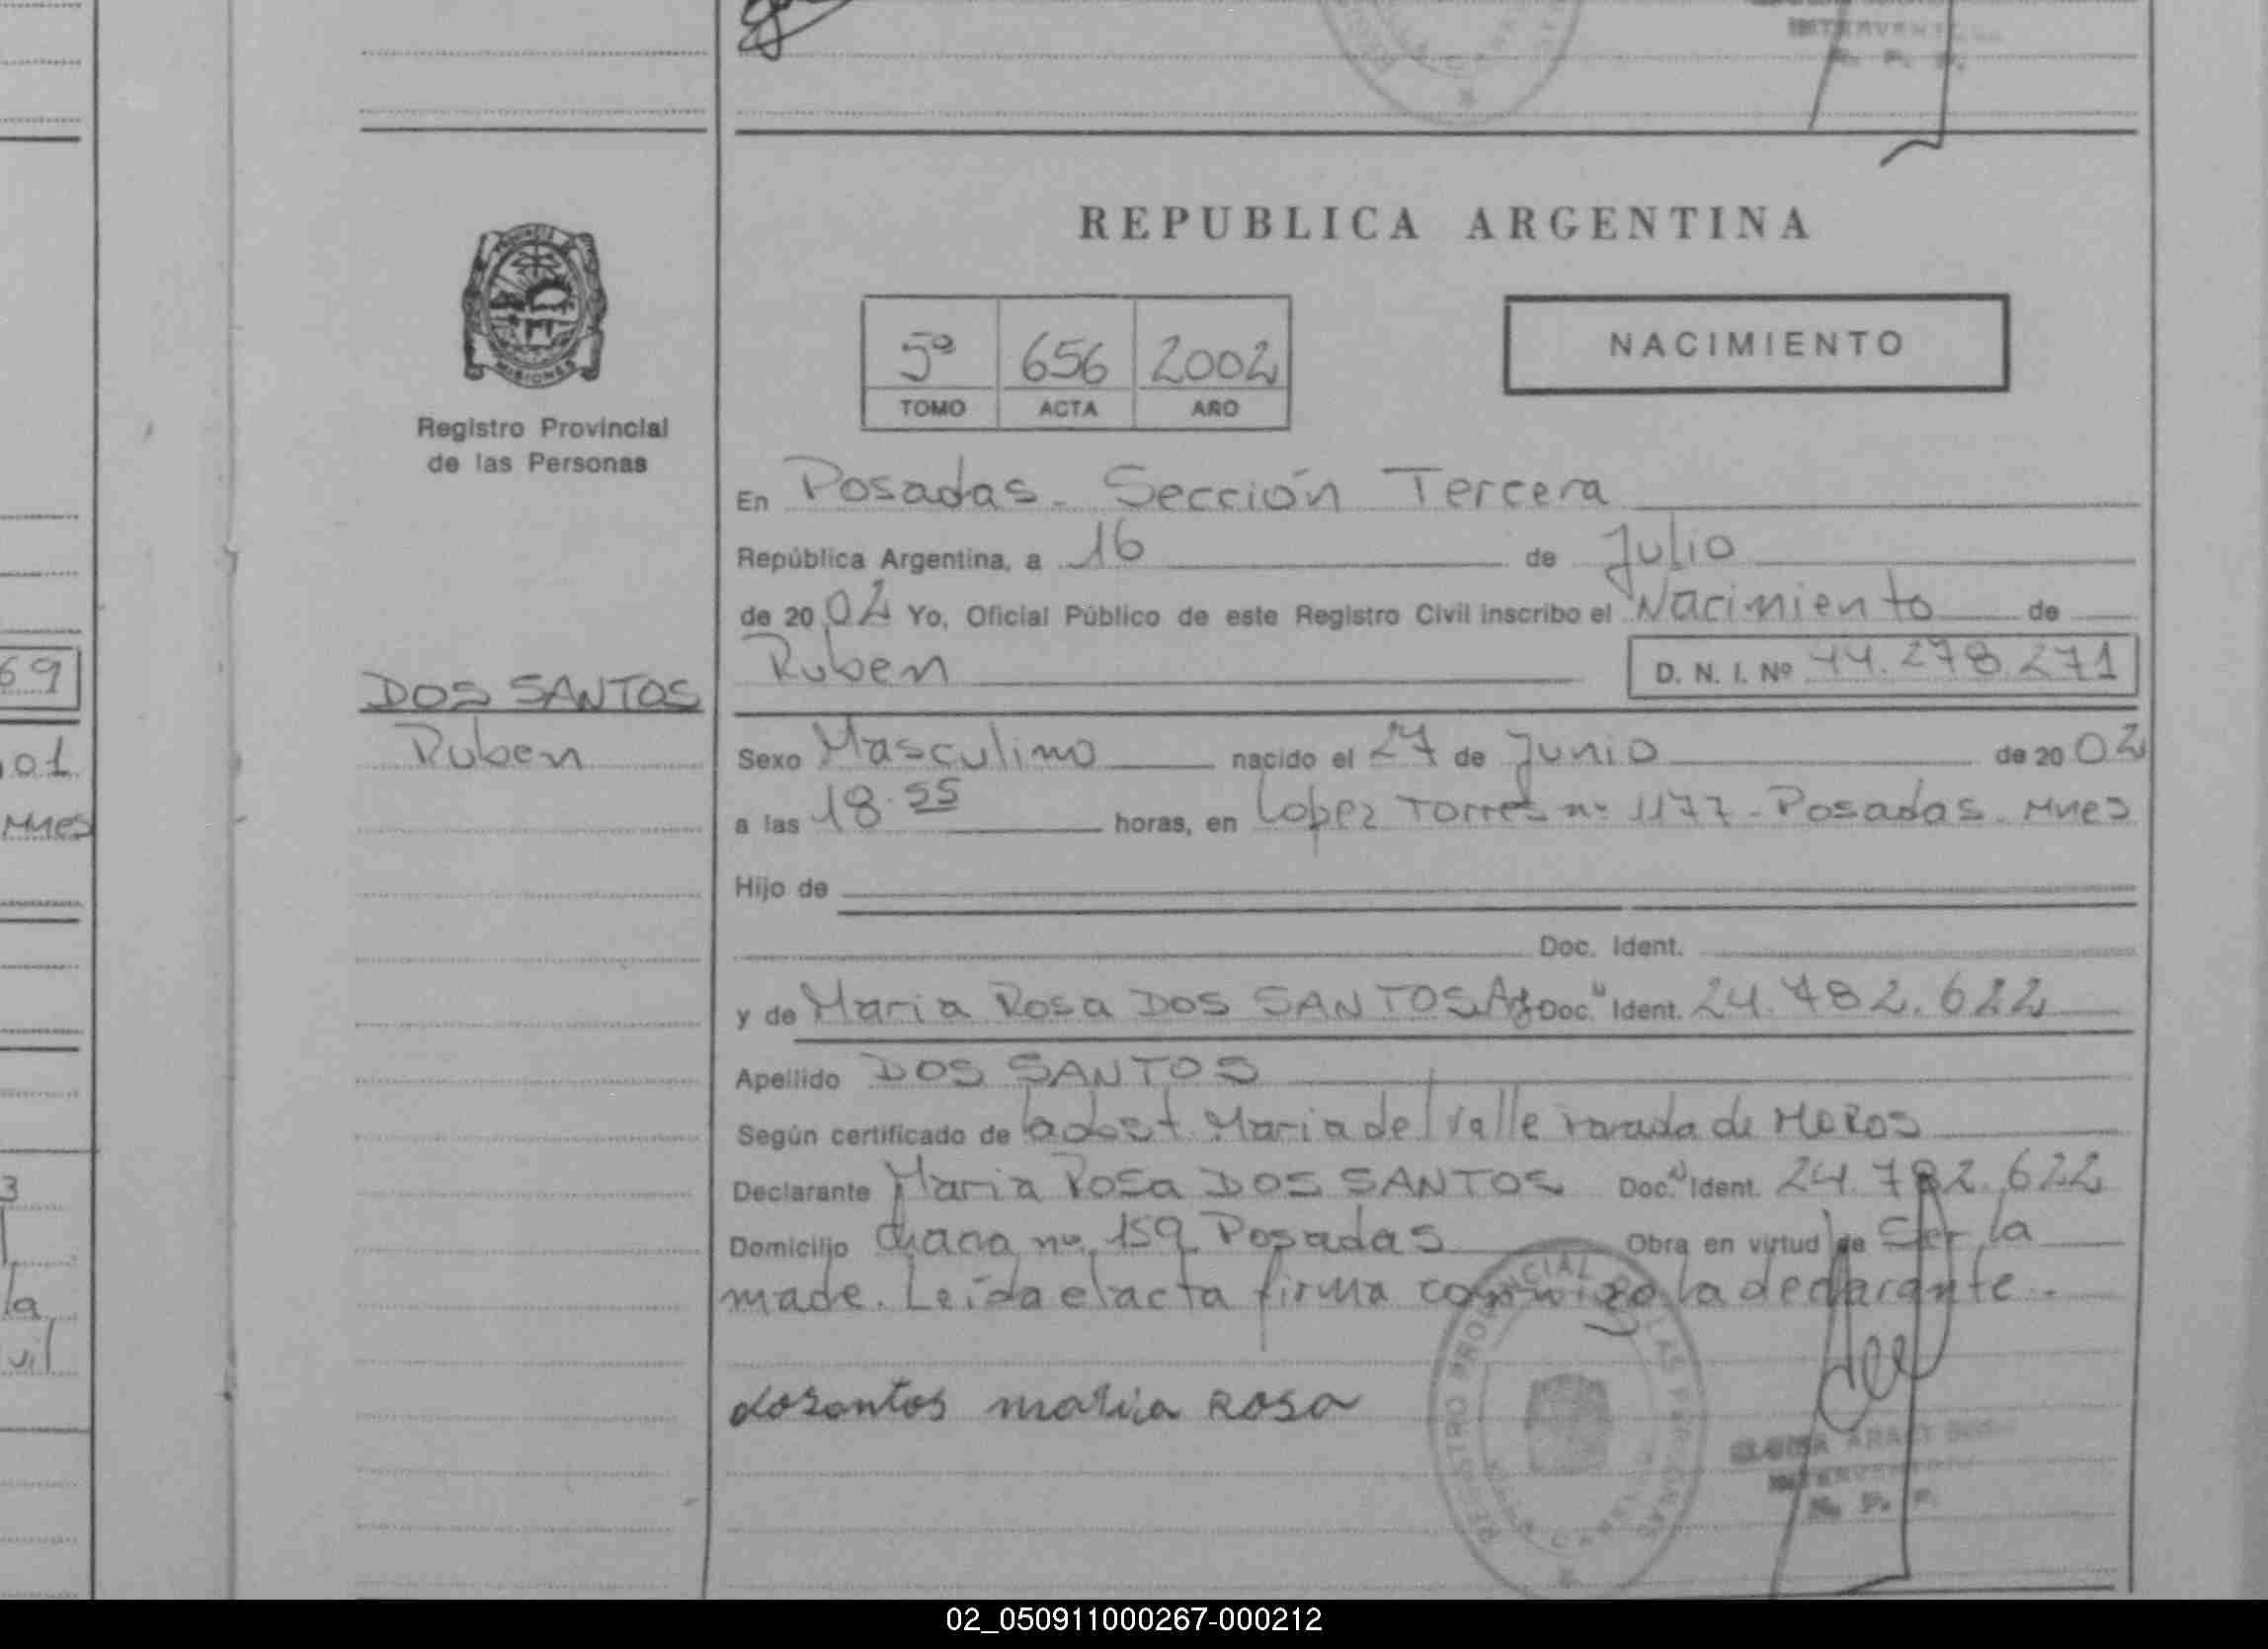 INTERVENT
R. P. P.
69
01
Mnes
3
la
vil
PROVINCIA
MISIONES
Registro Provincial
de las Personas
DOS SANTOS
Ruben
REPUBLICA ARGENTINA
5º 656 2002
TOMO ACTA AÑO
NACIMIENTO
En Posadas - Sección Tercera
República Argentina, a 16 de Julio
de 2002 Yo, Oficial Público de este Registro Civil inscribo el Nacimiento de
Ruben D. N. I. Nº 44.278.271
Sexo Masculino nacido el 27 de Junio de 2002
a las 18.55 horas, en Lopez Torres nº 1177 - Posadas. Mnes
Hijo de
Doc. Ident.
y de Maria Rosa DOS SANTOS Arg Doc. Ident. 24.782.622
Apellido DOS SANTOS
Según certificado de la obst. Maria del Valle de MOROS
Declarante Maria Rosa DOS SANTOS Doc. Ident. 24.782.622
Domicilio Chacra nº 159 Posadas Obra en virtud de Ser la
made. Leída el acta firma conmigo la declarante.
dosantos maria Rosa
REGISTRO PROVINCIAL DE LAS PERSONAS
INTERVENTOR
R. P. P.
02_050911000267-000212